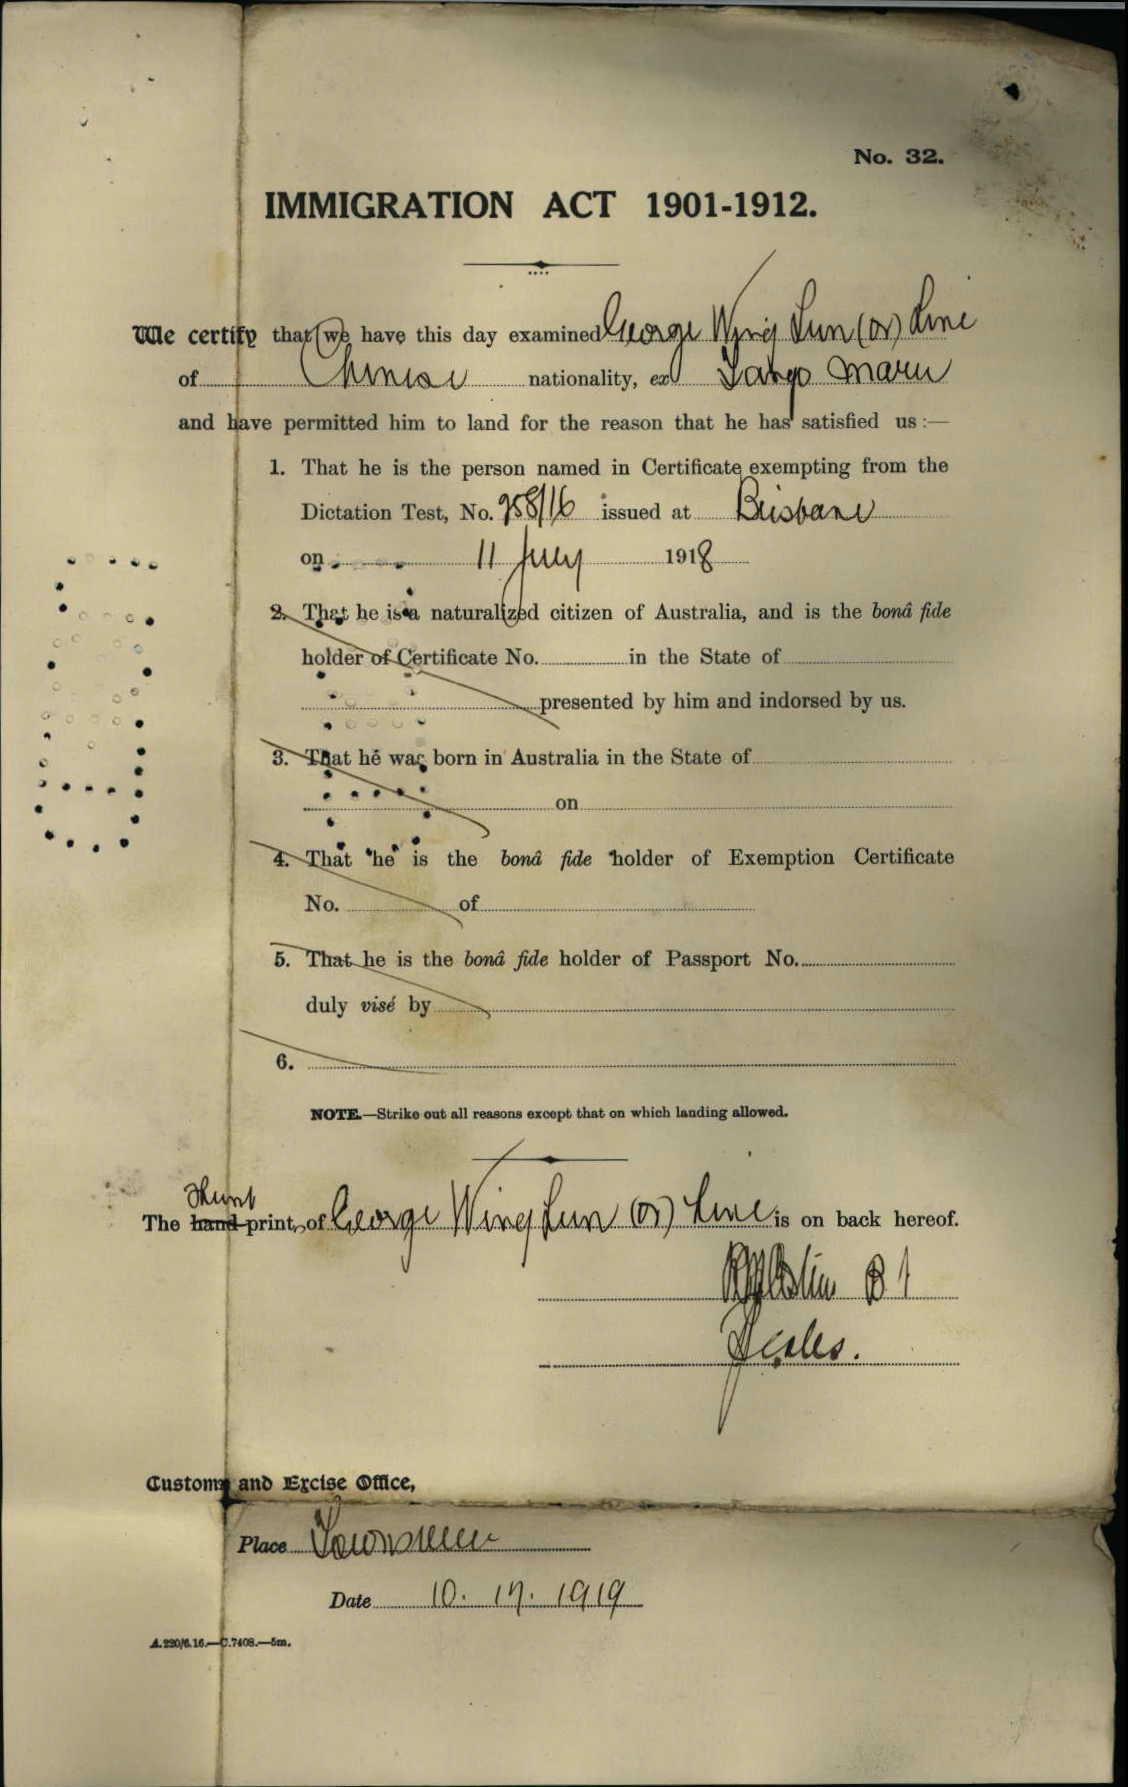 No. 32.
IMMIGRATION ACT 1901-1912.
We certify that (we have this day examined George Wing Lun (or) Line
of Chinese nationality, ex Tango Maru
and have permitted him to land for the reason that he has satisfied us :—
1. That he is the person named in Certificate exempting from the
Dictation Test, No. 258/16 issued at Brisbane
on 11 July 1918
2. That he is a naturalized citizen of Australia, and is the bonâ fide
holder of Certificate No. in the State of
presented by him and indorsed by us.
3. That he was born in Australia in the State of
on
4. That he is the bonâ fide holder of Exemption Certificate
No. of
5. That he is the bonâ fide holder of Passport No.
duly visé by
6.
NOTE.—Strike out all reasons except that on which landing allowed.
Thumb
The hand-print, of George Wing Lun (or) Line is on back hereof.
Customs and Excise Office,
Place Townsville
Date 10. 1919
A.220/6.16.—C.7408.—5m.